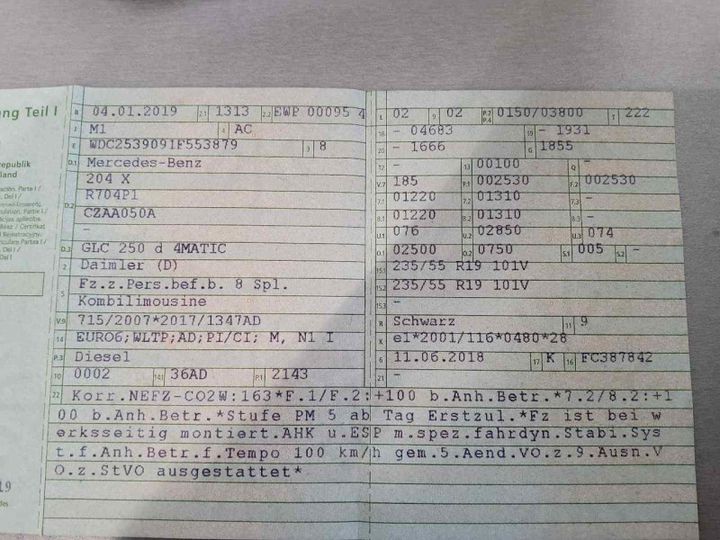 ng Teil I
B 04.01.2019 2.1 1313 2.2 EWP 00095 4
J M1 4 AC
E WDC2539091F553879 3 8
D.1 Mercedes-Benz
204 X
D.2 R704P1
CZAA050A
-
D.3 GLC 250 d 4MATIC
2 Daimler (D)
5 Fz.z.Pers.bef.b. 8 Spl.
Kombilimousine
V.9 715/2007*2017/1347AD
14 EURO6;WLTP;AD;PI/CI; M, N1 I
P.3 Diesel
10 0002 14.1 36AD P.1 2143
L 02 9 02 P.2 P.4 0150/03800 T 222
18 - 04683 19 - 1931
20 - 1666 G 1855
12 - 13 00100 Q -
V.7 185 F.1 002530 F.2 002530
7.1 01220 7.2 01310 7.3 -
8.1 01220 8.2 01310 8.3 -
U.1 076 U.2 02850 U.3 074
O.1 02500 O.2 0750 S.1 005 S.2 -
15.1 235/55 R19 101V
15.2 235/55 R19 101V
15.3 -
R Schwarz 11 9
K e1*2001/116*0480*28
6 11.06.2018 17 K 16 FC387842
21 -
22 Korr.NEFZ-CO2W:163*F.1/F.2:+100 b.Anh.Betr.*7.2/8.2:+1
00 b.Anh.Betr.*Stufe PM 5 ab Tag Erstzul.*Fz ist bei w
erksseitig montiert.AHK u.ESP m.spez.fahrdyn.Stabi.Sys
t.f.Anh.Betr.f.Tempo 100 km/h gem.5.Aend.VO.z.9.Ausn.V
O.z.StVO ausgestattet*
19